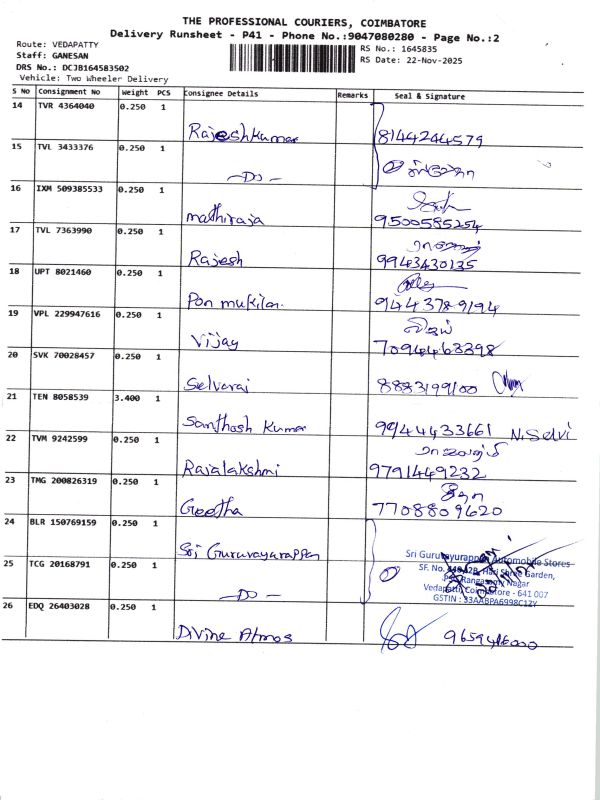 THE PROFESSIONAL COURIERS, COIMBATORE
Delivery Runsheet - P41 - Phone No.:9047080280 - Page No.:2
Route: VEDAPATTY
Staff: GANESAN
DRS No.: DCJB164583502
Vehicle: Two Wheeler Delivery
RS No.: 1645835
RS Date: 22-Nov-2025
S No Consignment No Weight PCS Consignee Details Remarks Seal & Signature
14 TVR 4364040 0.250 1 Rajeshkumar 8144244579
15 TVL 3433376 0.250 1 -Do-
16 IXM 509385533 0.250 1 mathiraja 9500585254
17 TVL 7363990 0.250 1 Rajesh 9943430135
18 UPT 8021460 0.250 1 Pon mukilan. 9443789194
19 VPL 229947616 0.250 1 Vijay விஜய் 7094463398
20 SVK 70028457 0.250 1 Selvaraj 8883199100
21 TEN 8058539 3.400 1 Santhosh Kumar 9944433661 N.Selvi
22 TVM 9242599 0.250 1 Rajalakshmi 9791449232
23 TMG 200826319 0.250 1 Geetha கீதா 7708809620
24 BLR 150769159 0.250 1 Sri Guruvayurappan
Sri Guruvayurappan Automobile Stores
SF. No. Hari Shree Garden,
Rangasamy Nagar
Vedapatti, Coimbatore - 641 007
GSTIN : 33AABPA6998C1ZY
25 TCG 20168791 0.250 1 -Do-
26 EDQ 26403028 0.250 1 Divine Atmos 9659416000